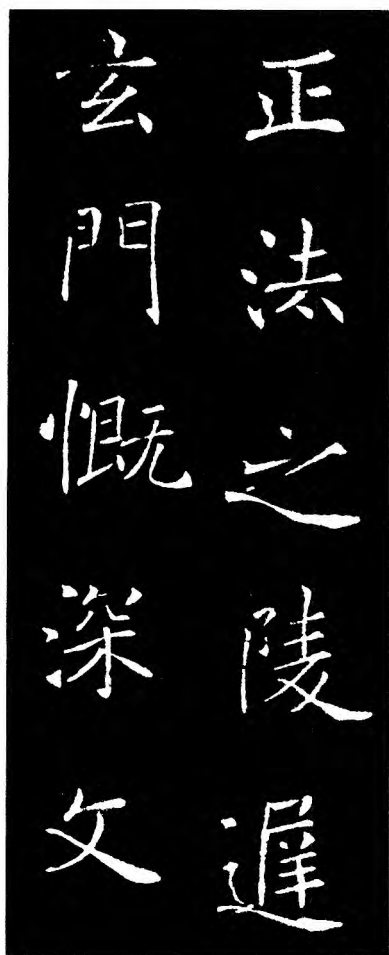 正法之陵遲
玄門慨深文